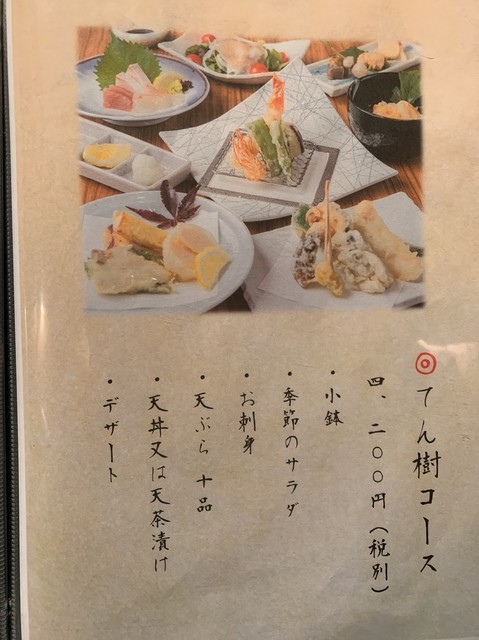 ◎てん樹コース
四、二〇〇円(税別)
・小鉢
・季節のサラダ
・お刺身
・天ぷら 十品
・天丼又は天茶漬け
・デザート